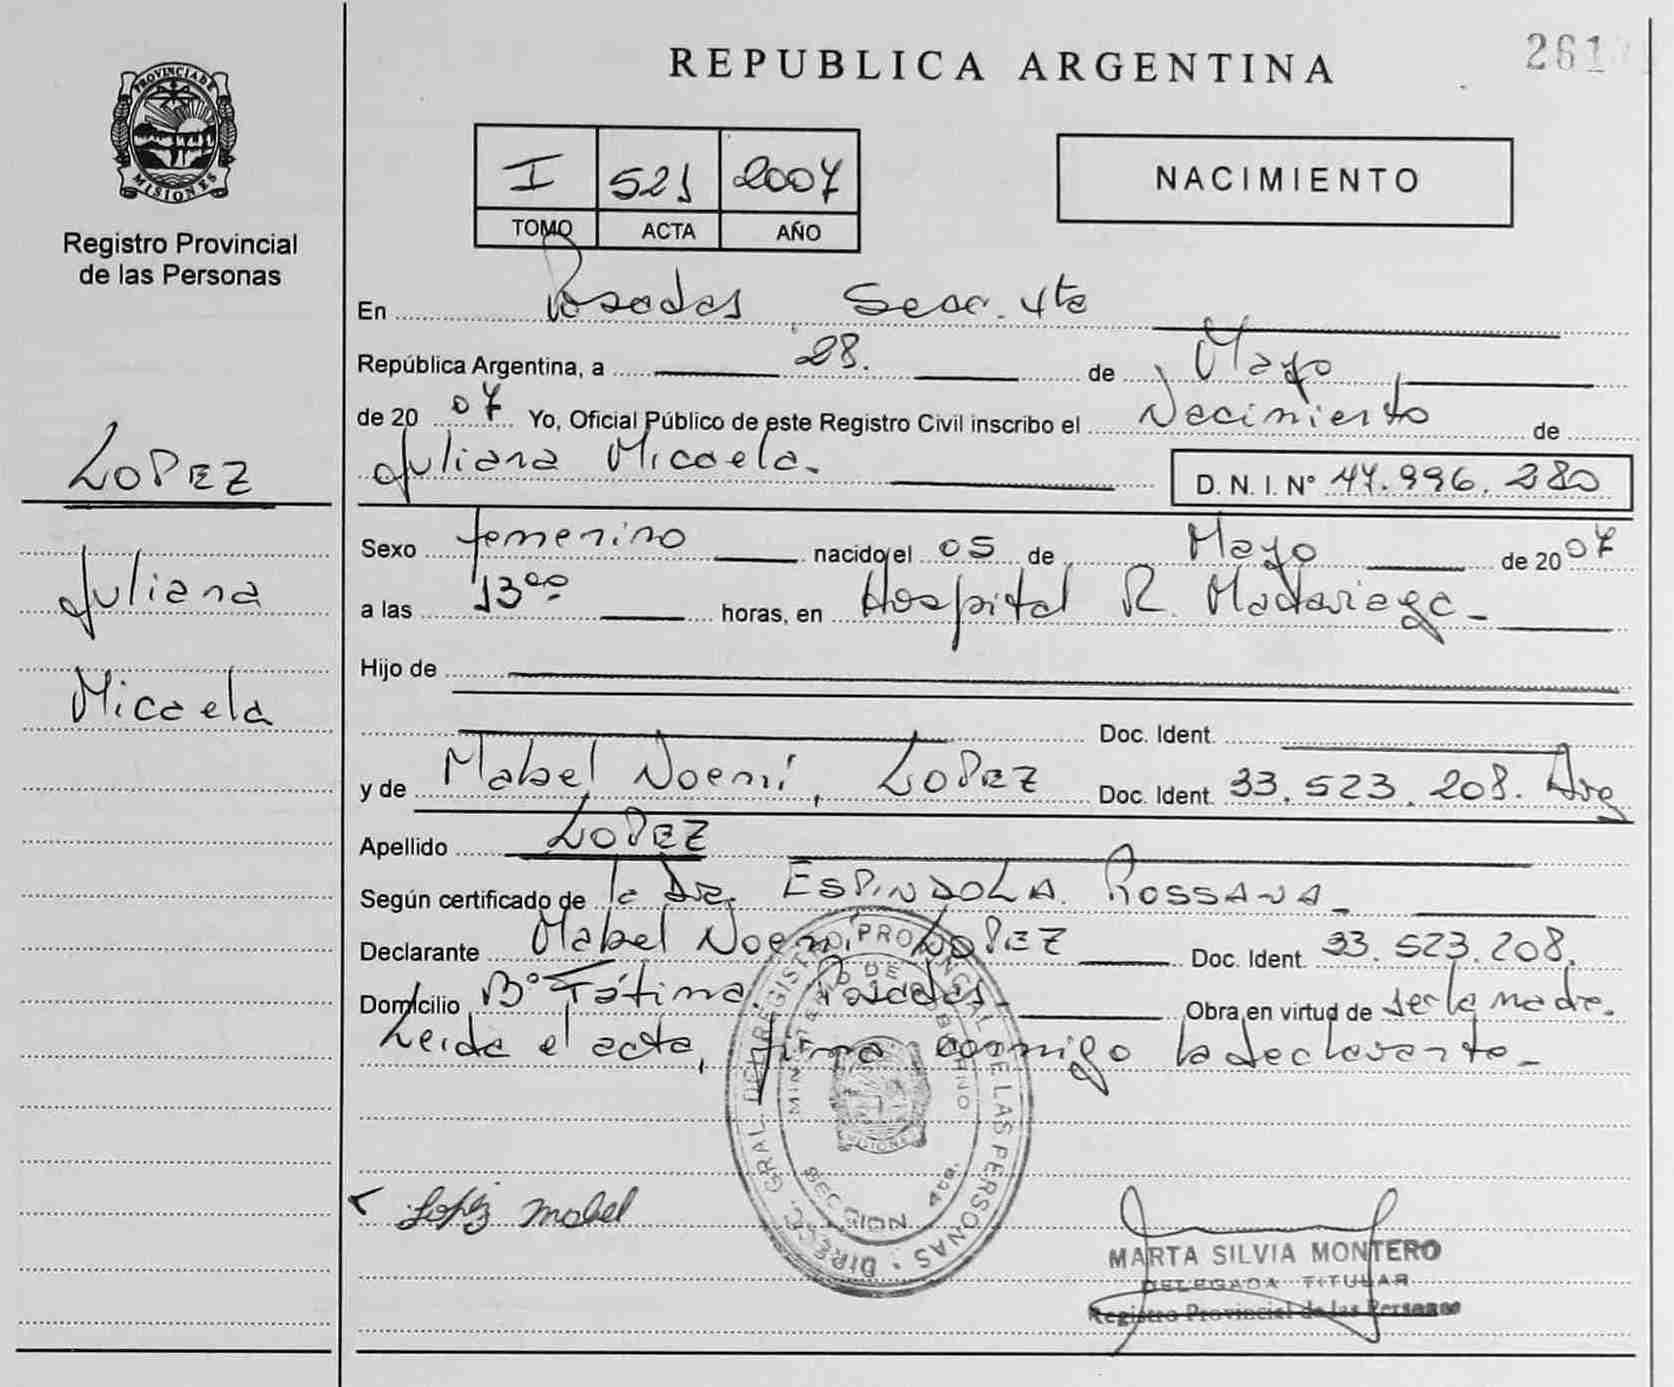 REPUBLICA ARGENTINA
261
PROVINCIA DE
MISIONES
Registro Provincial
de las Personas
I 521 2007
TOMO ACTA AÑO
NACIMIENTO
En Posadas Secc. 4ta
República Argentina, a 28. de Mayo
de 2007 Yo, Oficial Público de este Registro Civil inscribo el Nacimiento de
Juliana Micaela. D. N. I. N° 47.996.280
LOPEZ
Juliana
Micaela
Sexo femenino nacido el 05 de Mayo de 2007
a las 13°° horas, en Hospital R. Madariaga_
Hijo de
Doc. Ident.
y de Mabel Noemí, LOPEZ Doc. Ident. 33.523.208. Arg
Apellido LOPEZ
Según certificado de la Dra. ESPINDOLA ROSSANA_
Declarante Mabel Noemí LOPEZ Doc. Ident. 33.523.208.
Domicilio B° Fátima, Posadas_ Obra en virtud de ser la madre.
Leida el acta, firma conmigo la declarante_
DIRECC. GRAL. DEL REGISTRO PROVINCIAL DE LAS PERSONAS
MINISTERIO DE GOBIERNO
MISIONES
SECCION 4ta.
López Mabel
MARTA SILVIA MONTERO
DELEGADA TITULAR
Registro Provincial de las Personas